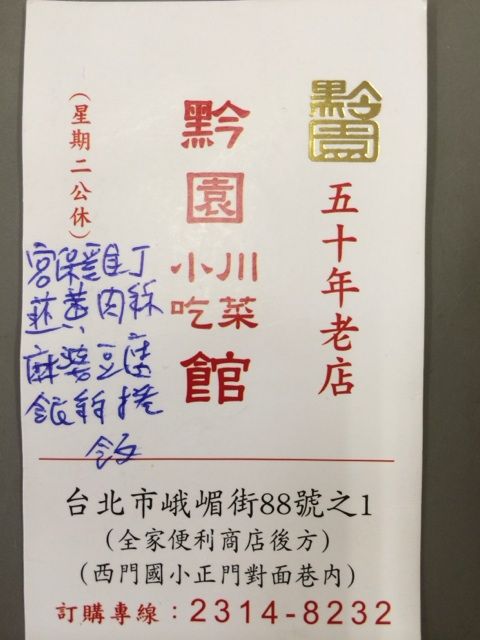 黔園
五十年老店
黔園
川菜
小吃
館
(星期二公休)
宮保雞丁
韭黃肉絲
麻婆豆腐
銀絲捲
飯
台北市峨嵋街88號之1
(全家便利商店後方)
(西門國小正門對面巷內)
訂購專線：2314-8232